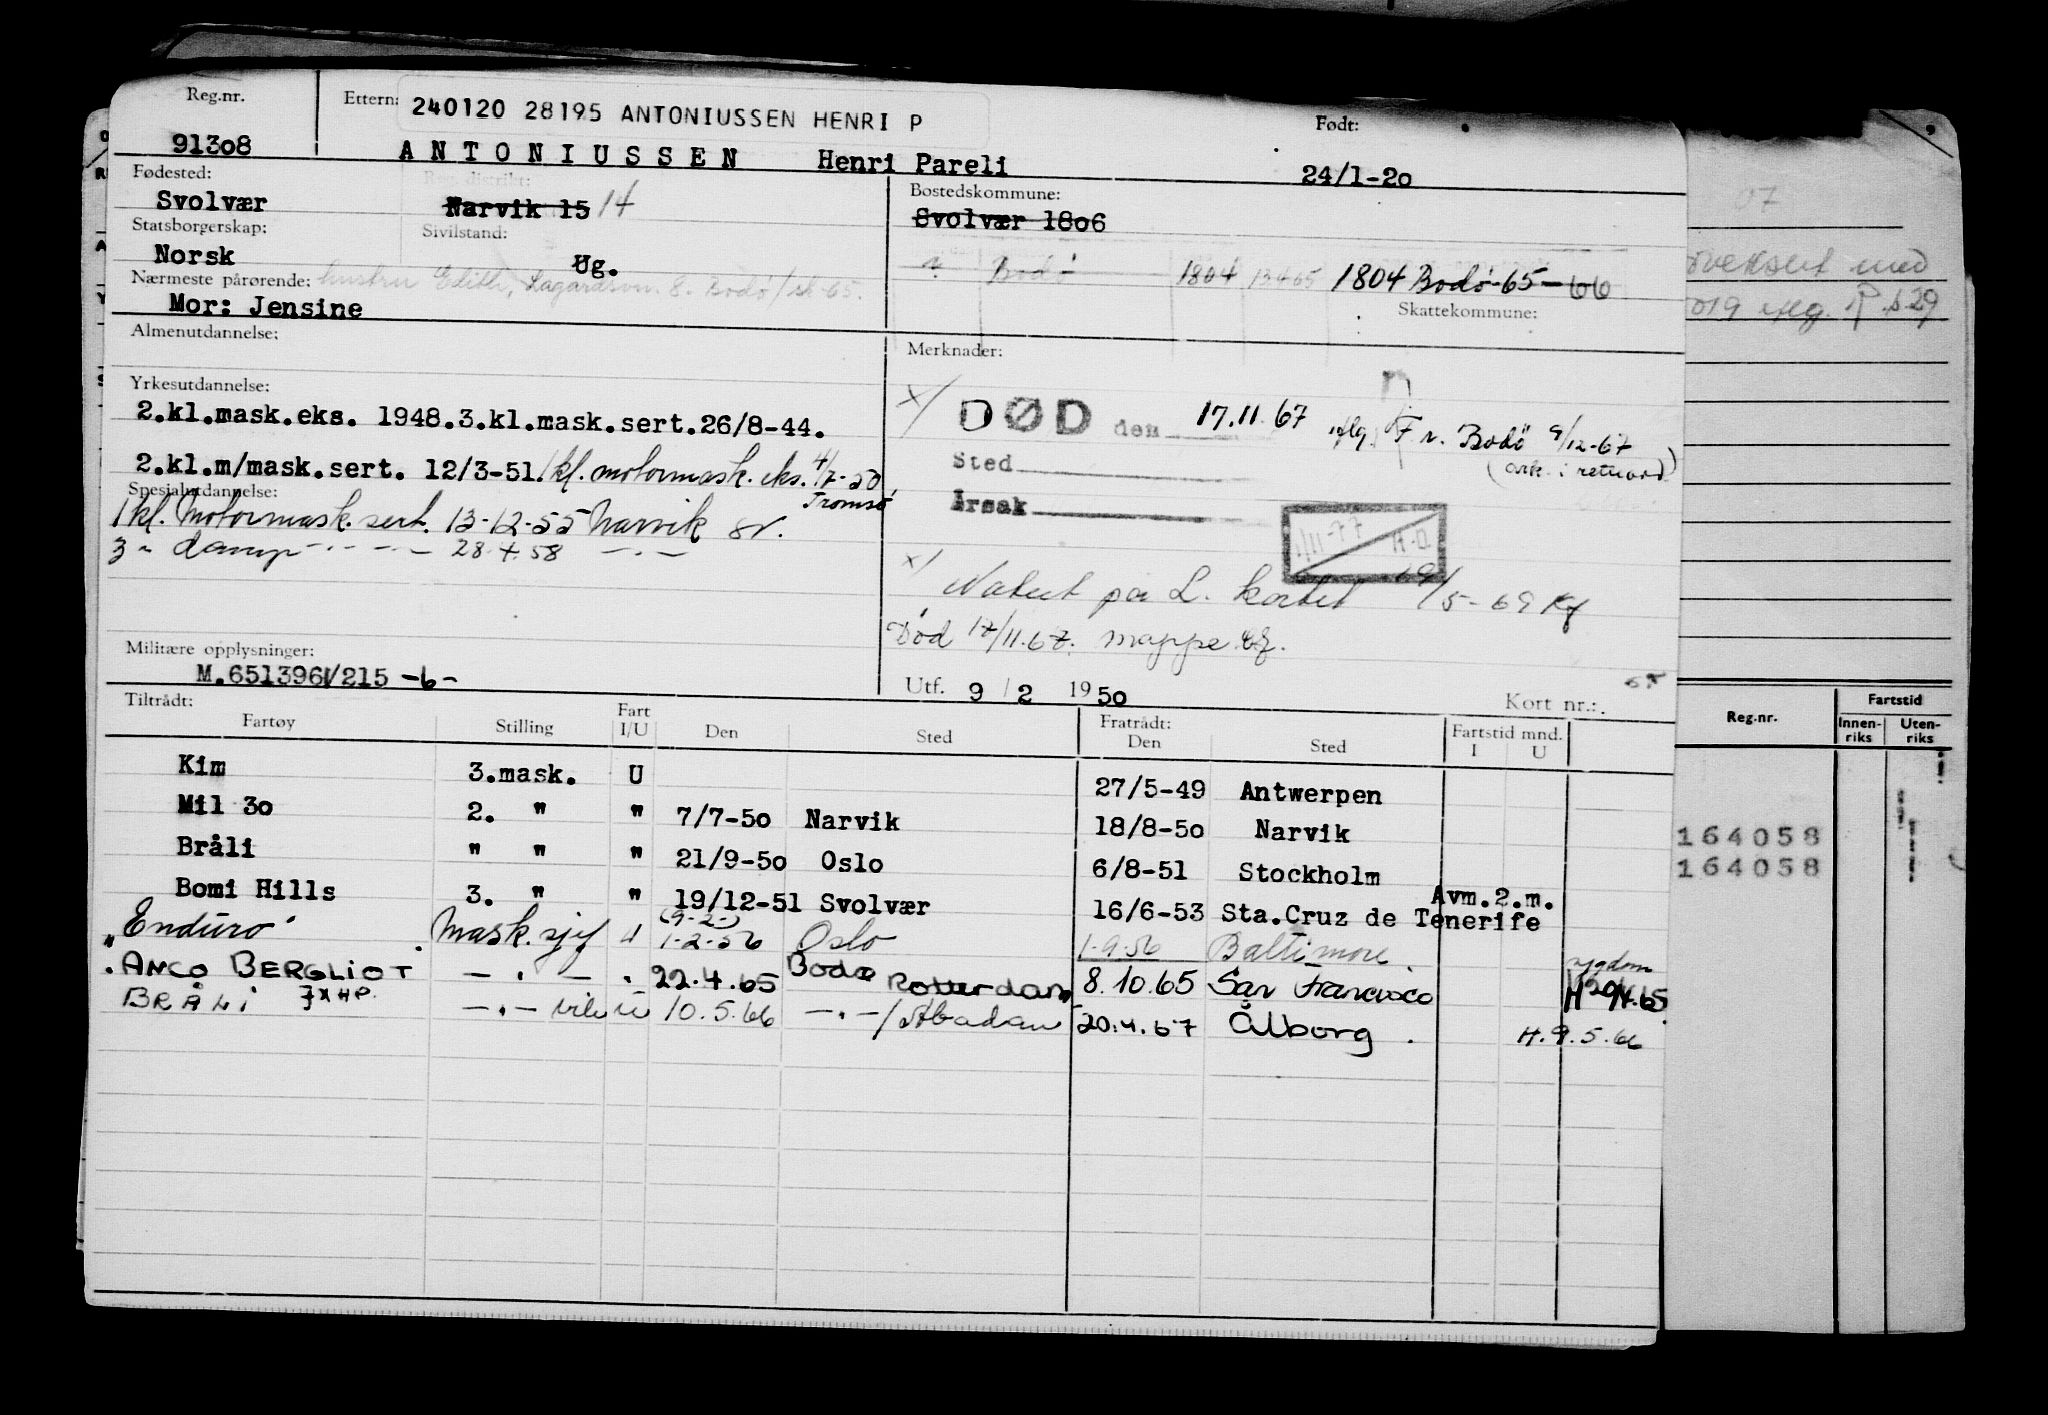 Reg.nr. Ettern: 240120 28195 ANTONIUSSEN HENRI P Født:
91308 ANTONIUSSEN Henri Pareli 24/1-20
Fødested: Reg. distrikt: Bostedskommune:
Svolvær Narvik 15 14 Svolvær 1806
Statsborgerskap: Sivilstand:
Norsk Ug. Bodø 1804 13465 1804 Bodø-65-66
Nærmeste pårørende: hustru Edith, 8. Bodø/sk-65.
Mor: Jensine Skattekommune:
Almenutdannelse: Merknader:
Yrkesutdannelse:
2.kl.mask.eks. 1948.3.kl.mask.sert.26/8-44.
x/ DØD den 17.11.67 iflg. F.r. Bodø 9/12-67
2.kl.m/mask.sert. 12/3-51. 1kl. motormask. eks. 4/7-50 Tromsø
Sted (ark. i
Spesialutdannelse:
1kl. Motormask. sert. 13-12-55 Narvik sr.
Årsak
3 " damp -"- 28.4.58 -"-
1/11-77
x/ Notert på L. kortet 19/5-69 Kf
Død 17/11.67. mappe
Militære opplysninger:
M.651396V/215 -6-
Utf. 9 / 2 1950 Kort nr.:
Tiltrådt: Fartøy Stilling Fart I/U Den Sted Fratrådt: Den Sted Fartstid mnd. I U
Kim 3.mask. U 27/5-49 Antwerpen
Mil 30 2. " " 7/7-50 Narvik 18/8-50 Narvik
Bråli " " " 21/9-50 Oslo 6/8-51 Stockholm
Bomi Hills 3. " " 19/12-51 Svolvær 16/6-53 Sta.Cruz de Tenerife Avm.2.m.
"Enduro" Mask.sjef U (9-2-) 1-2-56 Oslo 1-9-56 Baltimore
"ANCO BERGLIOT -"- " 22.4.65 Bodø Rotterdam 8.10.65 San Francisco sygdom H 29.4.65
BRÅLI -"- U 10.5.66 -"-/Abadan 20.4.67 Ålborg. H.9.5.66
07
med
R. s 29
Reg.nr. Fartstid
Innenriks Utenriks
164058
164058